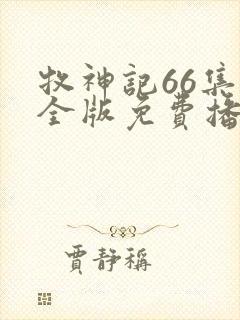 牧神記66集
全版免費播
賈靜稱